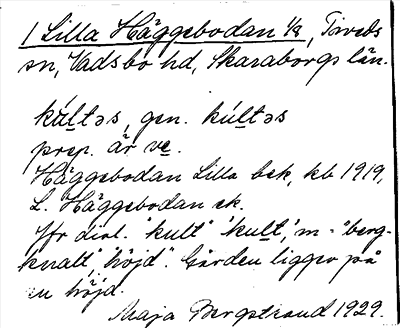 1 Lilla Häggebodan 1/8, Tiveds
sn, Vadsbo hd, Skaraborgs län.
kúltəs, gen. kúltəs
prep. är ve.
Häggebodan Lilla bek, kb 1919,
L. Häggebodan ek.
Jfr dial. "kult" 'kult', m = "berg-
knatt, höjd". Gården ligger på
en höjd.
Maja Bergstrand 1929.